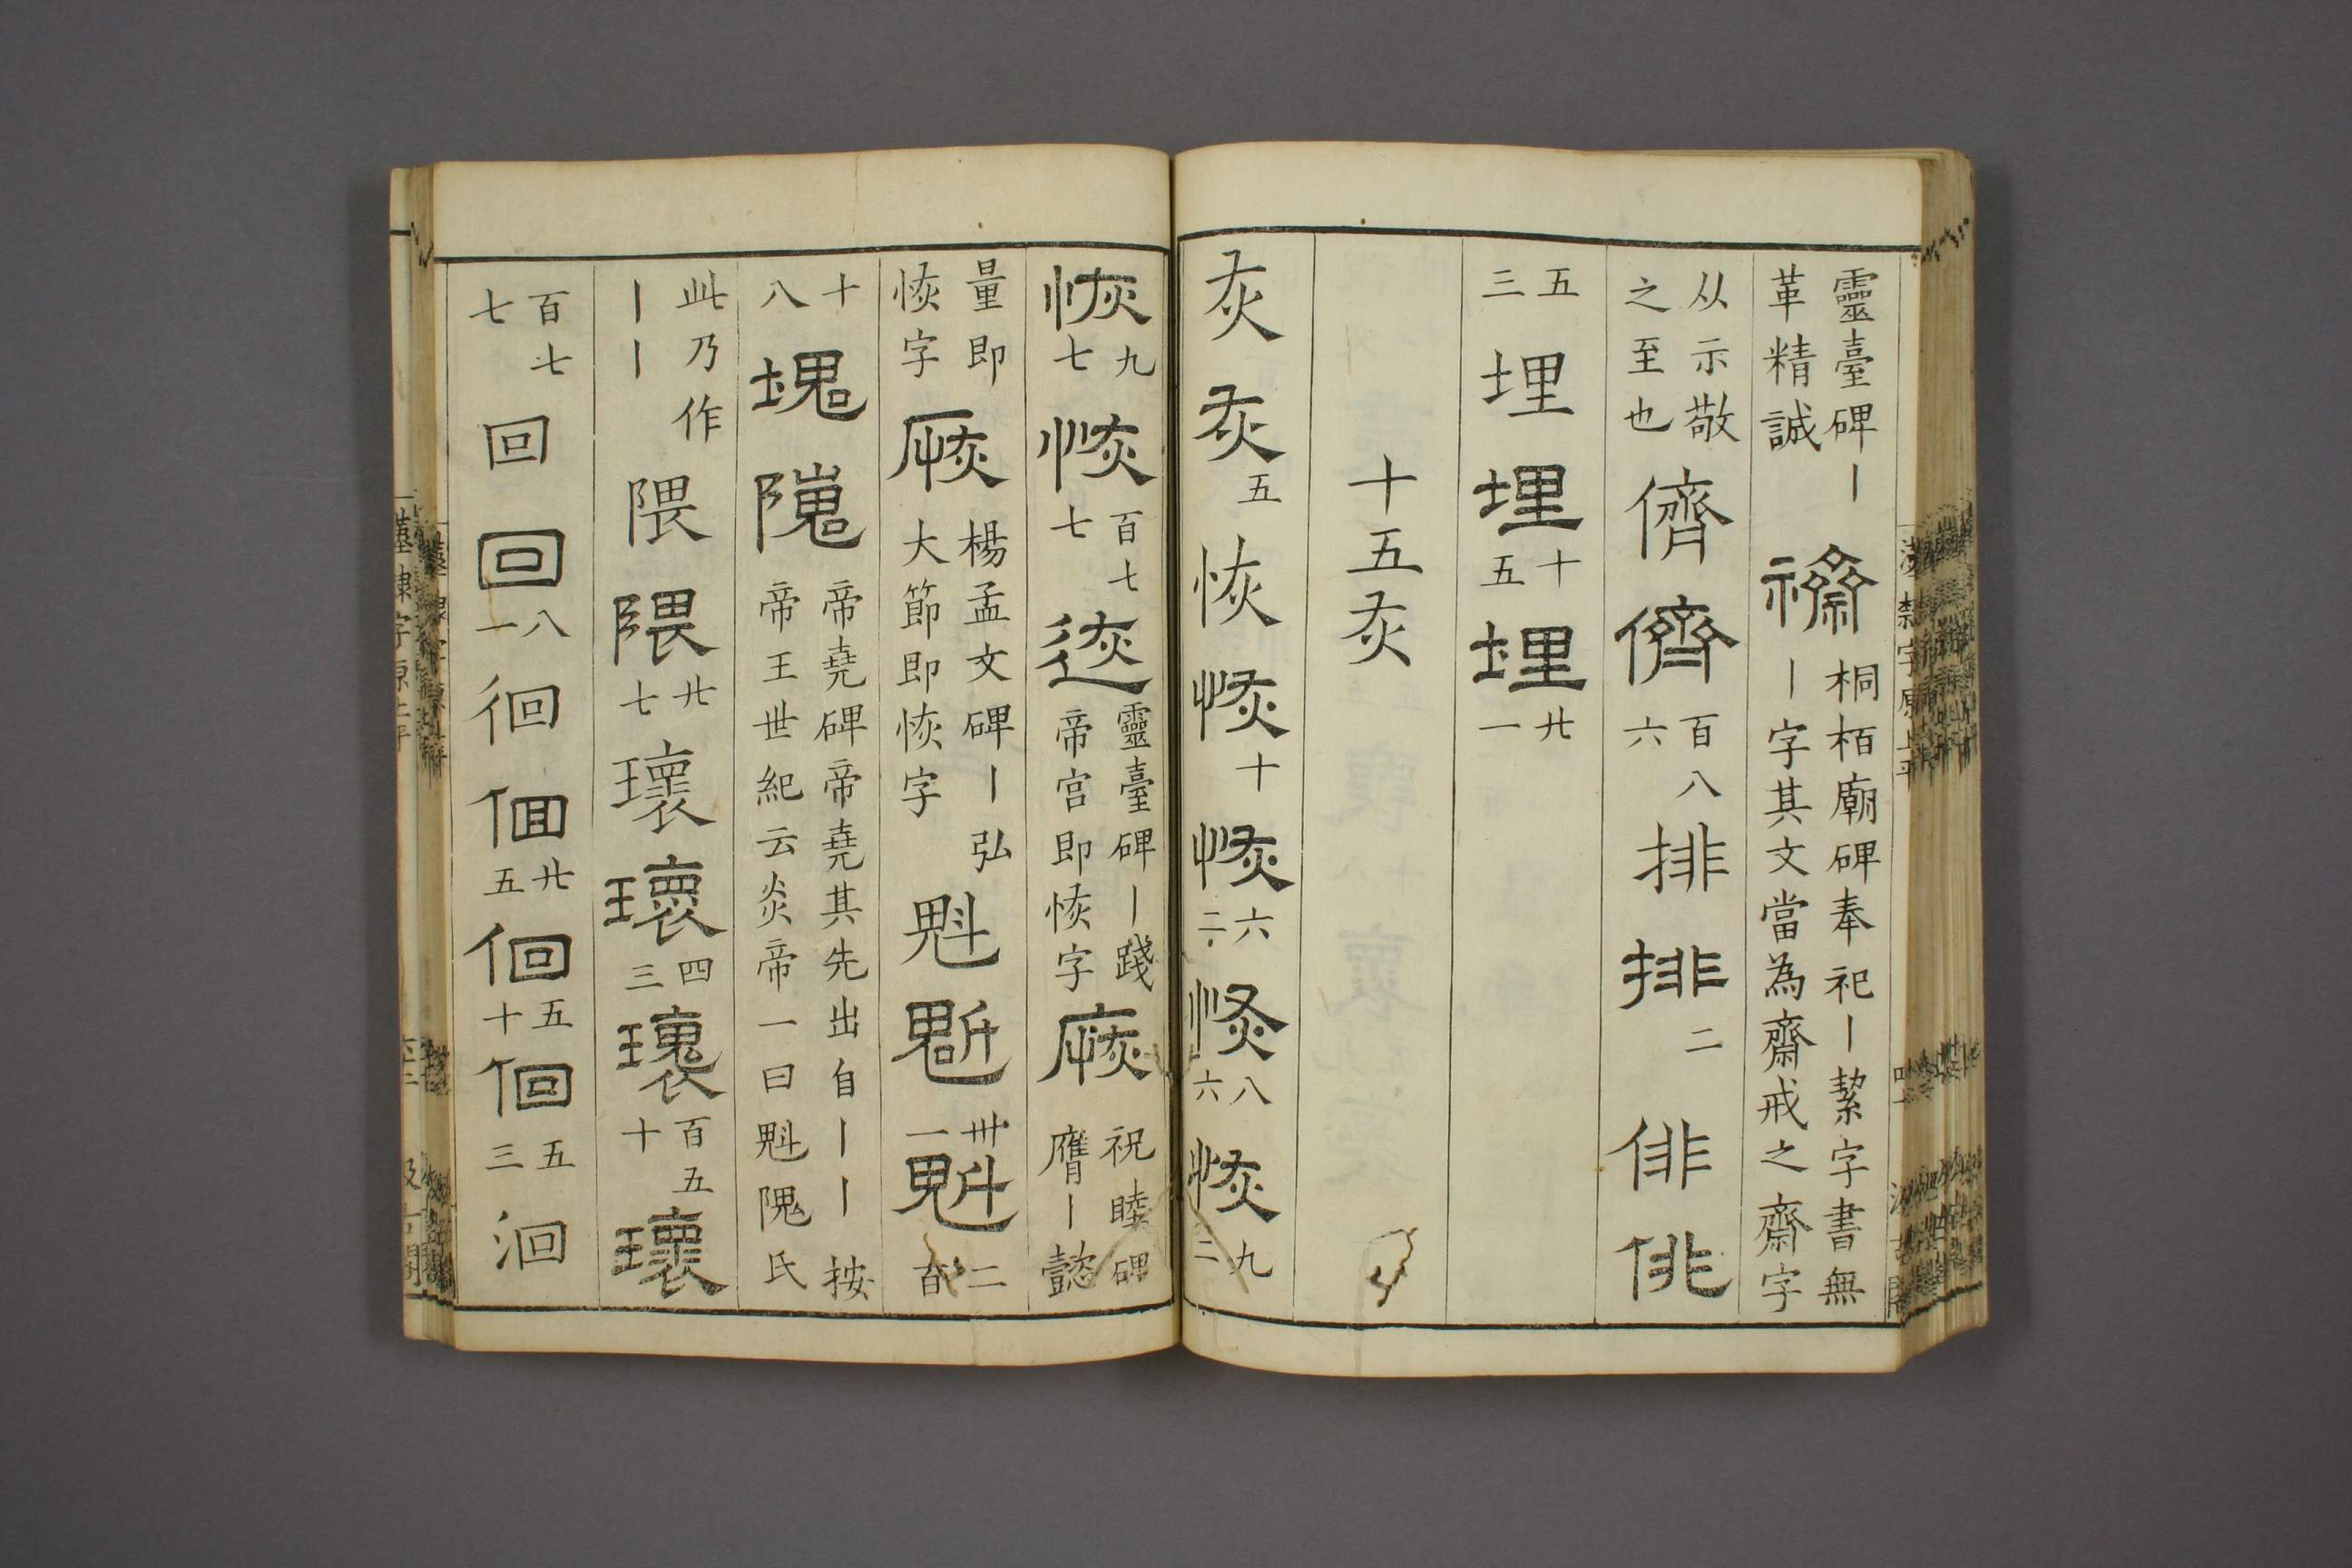 靈臺碑丨
革精誠
䄢
桐栢廟碑奉祀丨絜字書無
丨字其文當為齋戒之齋字
从示敬
之至也
儕儕
百八
六
排排
二
俳俳
五
三
埋埋
十
五
埋
廿
一
十五灰
灰灰
五
恢恢
十
恢
六
二
恢
八
六
恢
九
二
恢
九
七
恢
百七
七
靈臺碑丨踐
帝宫即恢字
祝睦碑
膺丨懿
量即
恢字
楊孟文碑丨弘
大節即恢字
魁魁
卅
一
魁
二
百
十
八
塊隗
帝堯碑帝堯其先出自丨丨按
帝王世紀云炎帝一曰魁隗氏
此乃作
丨丨
隈隈
廿
七
瓌瓌
四
三
瓌
百五
十
瓌
百七
七
回回
八
一
徊徊
廿
五
徊
五
十
徊
五
三
洄